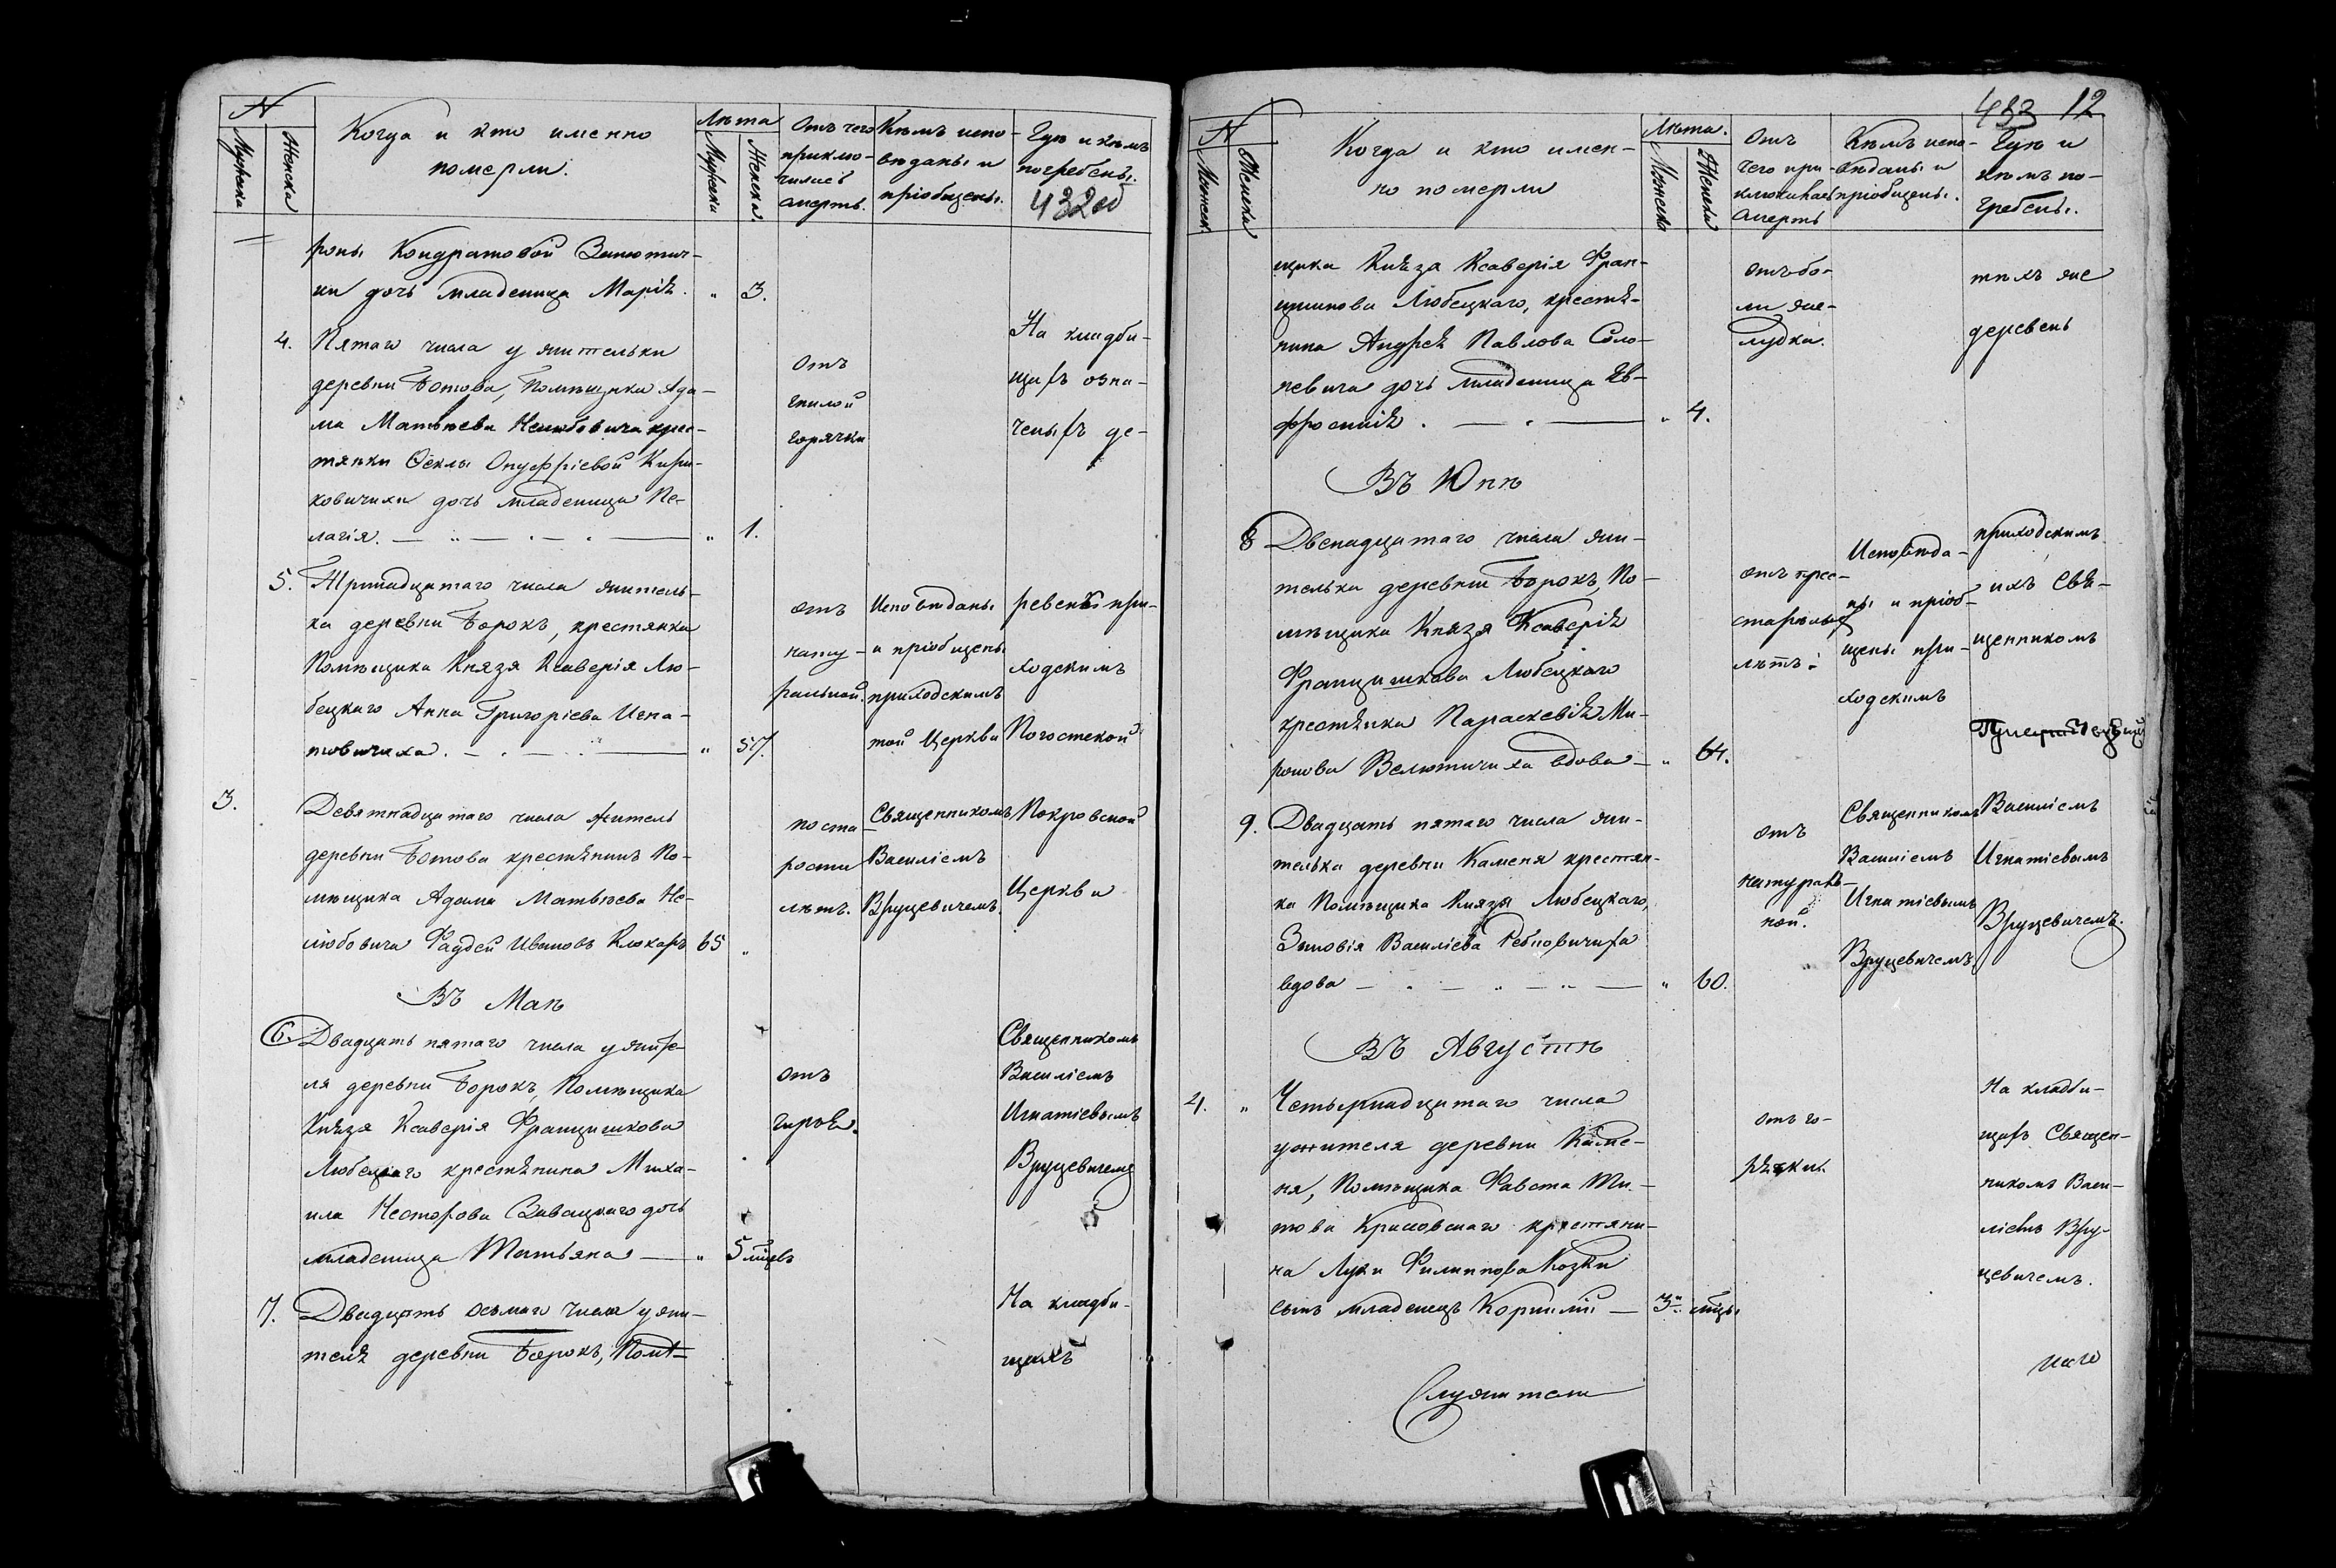 №
Мужска
Женска
Когда и кто именно
померли.
Лѣта
Мужска
Женска
Отъ чего
приклю-
чилась
смерть.
Кѣмъ испо-
вѣданы и
пріобщены.
Гдѣ и кѣмъ
погребены.
432 об
роны Кондратовой
ки дочь младеница Марія. " 3.
4. Пятаго числа у жительки
деревни Ботова, Помѣщика Ада-
ма Матвѣева Нелюбовича крес-
тянки Ѳеклы Онуфріевой Кири-
ковичихи дочь младеница Пе-
лагія. " 1.
отъ
гнилой
горячки
На кладби-
щахъ озна-
ченыхъ де-
5. Тринадцатаго числа житель-
ка деревни Борокъ, крестянка
Помѣщика Князя Ксаверія Лю-
бецкаго Анна Григоріева Игна-
товичиха. " 57.
отъ
нату-
ральной.
Исповѣданы
и пріобщены
приходскимъ
той Церкви
ревень при-
ходскимъ
Погостской
3. Девятнадцатаго числа житель
деревни Ботова крестянинъ По-
мѣщика Адама Матвѣева Не-
любовича Фаддей Ивановъ Клюкаръ 65 "
по ста
рости
лѣтъ.
Священникомъ
Василіемъ
Вруцевичемъ.
Покровской
Церкви
Въ Маѣ
6. Двадцать пятаго числа у жите-
ля деревни Борокъ, Помѣщика
Князя Ксаверія Францишкова
Любецкаго крестянина Миха-
ила Несторова дочь
младеница Татьяна " 5 мцевъ
отъ
Священникомъ
Василіемъ
Игнатіевымъ
Вруцевичемъ
7. Двадцать осьмаго числа у жи-
теля деревни Борокъ, Помѣ-
На кладби-
щахъ
433 12
№
Мужеска
Женска
Когда и кто имен-
но померли
Лѣта.
Мужска
Женска
Отъ
чего при-
ключилась
смерть
Кѣмъ испо-
вѣданы и
пріобщены.
Гдѣ и
кѣмъ по-
гребены.
щика Князя Ксаверія Фран-
цишкова Любецкаго, крестя-
нина Андрея Павлова Соло-
невича дочь младеница Ев-
фросинія. " 4.
отъ бо-
ли же-
лудка.
тѣхъ же
деревень
Въ Юнѣ
8 Двенадцатаго числа жи-
телька деревни Борокъ, По-
мѣщика Князя Ксаверія
Францишкова Любецкаго
крестянка Параскевія Ми-
ронова Велютичиха вдова " 64.
отъ прес-
старѣлыхъ
лѣтъ.
Исповѣда-
ны и пріоб-
щены при-
ходскимъ
приходскимъ
ихъ Свя-
щенникомъ
9. Двадцать пятаго числа жи-
телька деревни Каменя крестян-
ка Помѣщика Князя Любецкаго,
Зиновія Василіева Ребковичиха
вдова " 60.
отъ
натураль-
ной.
Священникомъ
Василіемъ
Игнатіевымъ
Вруцевичемъ
Василіемъ
Игнатіевымъ
Вруцевичемъ.
Въ Августѣ
4. " Четырнадцатаго числа
у жителя деревни Каме-
ня, Помѣщика Фавста Ти-
това Крассовскаго крестяни-
на Луки Филиппова Козки
сынъ младенецъ Корнилій 3 мцы
отъ го-
рячки.
На кладби-
щахъ Священ-
никомъ Васи-
ліемъ Вру-
цевичемъ.
Служители